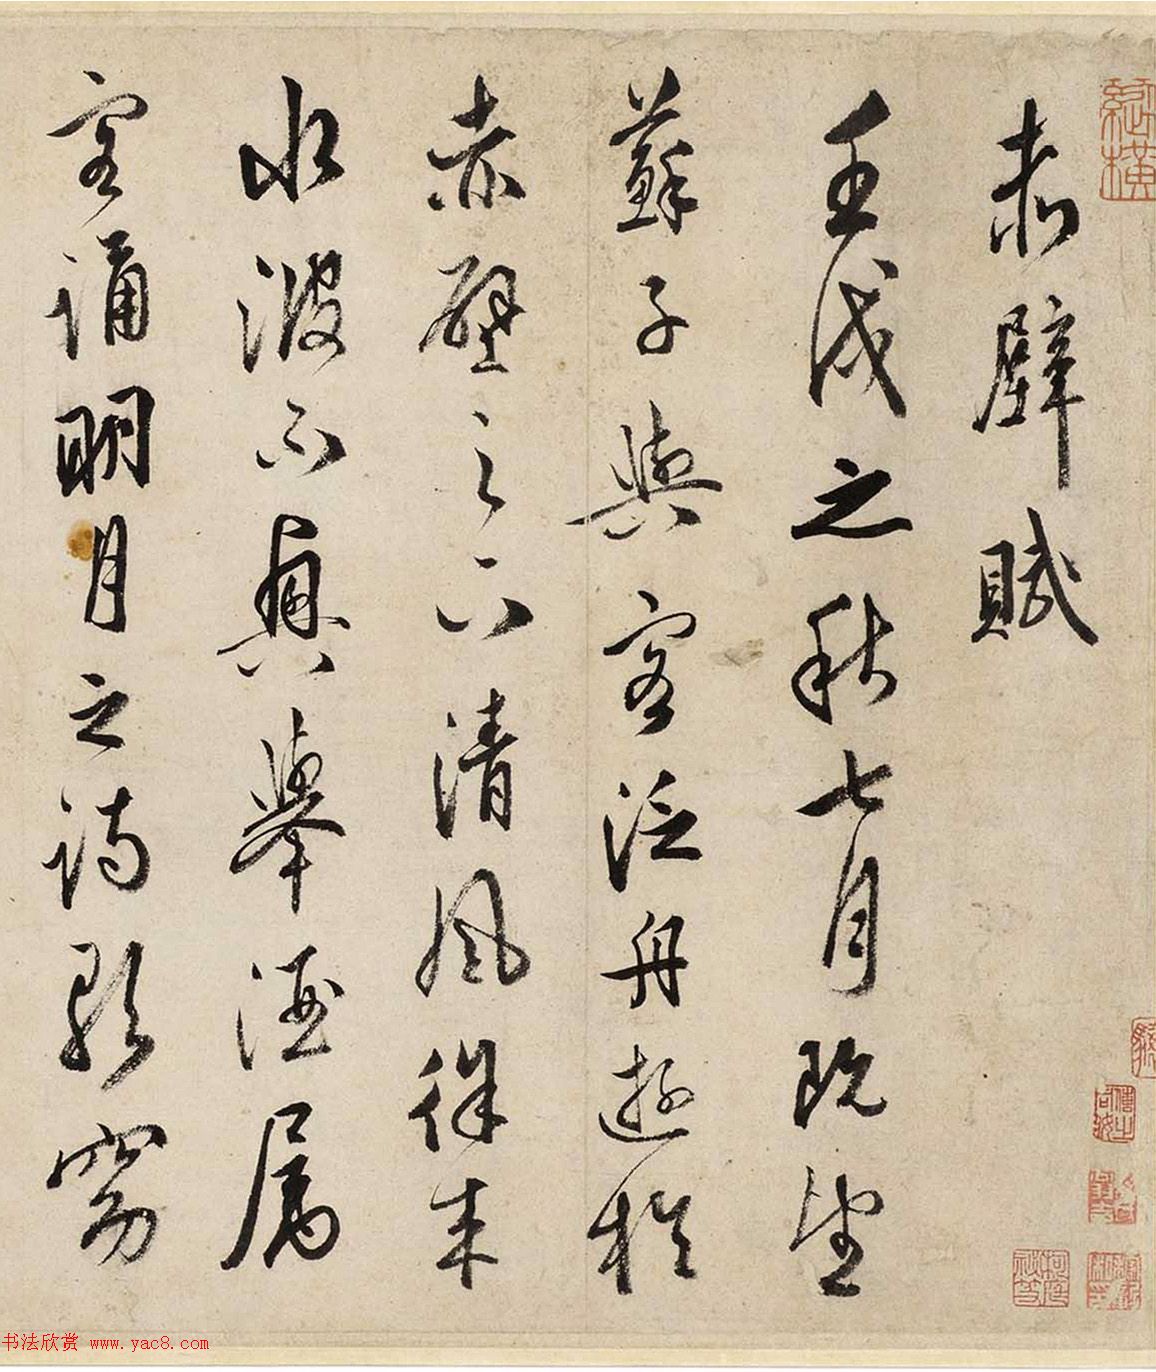 赤壁賦
壬戌之秋七月既望
蘇子與客泛舟遊於
赤壁之下清風徐來
水波不興舉酒屬
客誦明月之詩歌窈
縱橫
书法欣赏 www.yac8.com